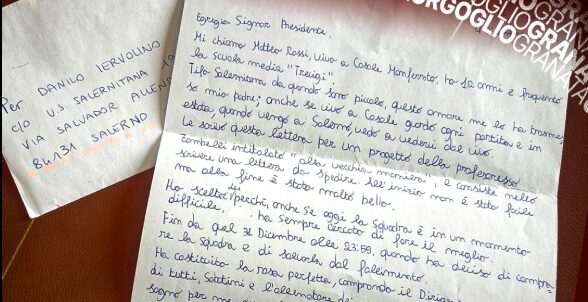 ORGOGLIOGRANATA
ORGOGLIOGRANATA
Per DANILO IERVOLINO
c/o U.S. SALERNITANA 19
VIA SALVADOR ALLEND
84131 SALERNO
Egregio Signor Presidente,
Mi chiamo Matteo Rossi, vivo a Casale Monferrato, ho 12 anni e frequento
la scuola media "Trevigi".
Tifo Salernitana da quando sono piccolo, questo amore me lo ha trasmes
so mio padre; anche se vivo a Casale guardo ogni partita e in
estate, quando vengo a Salerno, vado a vederli dal vivo.
Le scrivo questa lettera per un progetto della professoressa
Zambelli intitolato "alla vecchia maniera", e consiste nello
scrivere una lettera da spedire. All'inizio non è stato facile
ma alla fine è stato molto bello.
Ho scelto lei perché, anche se oggi la squadra è in un momento
difficile, ha sempre cercato di fare il meglio.
Fin da quel 31 Dicembre alle 23:59, quando ha deciso di compra
re la squadra e di salvarla dal fallimento.
Ha costruito la rosa perfetta, comprando il Dirige
di tutti, Sabatini e l'allenatore
sogno per me